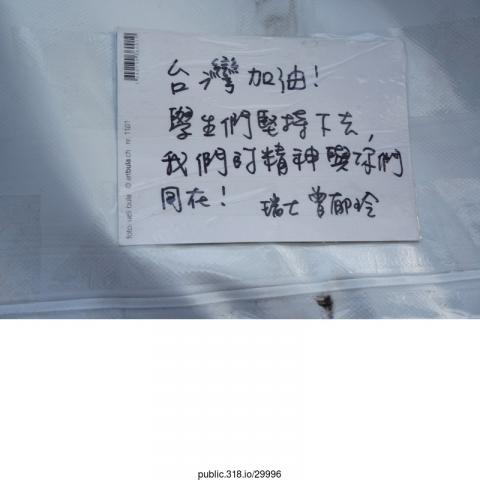 台灣加油!
學生們堅持下去,
我們的精神與你們
同在! 瑞士 曾郁玲
foto: ueli bula © artbula.ch nr. 1101
public.318.io/29996